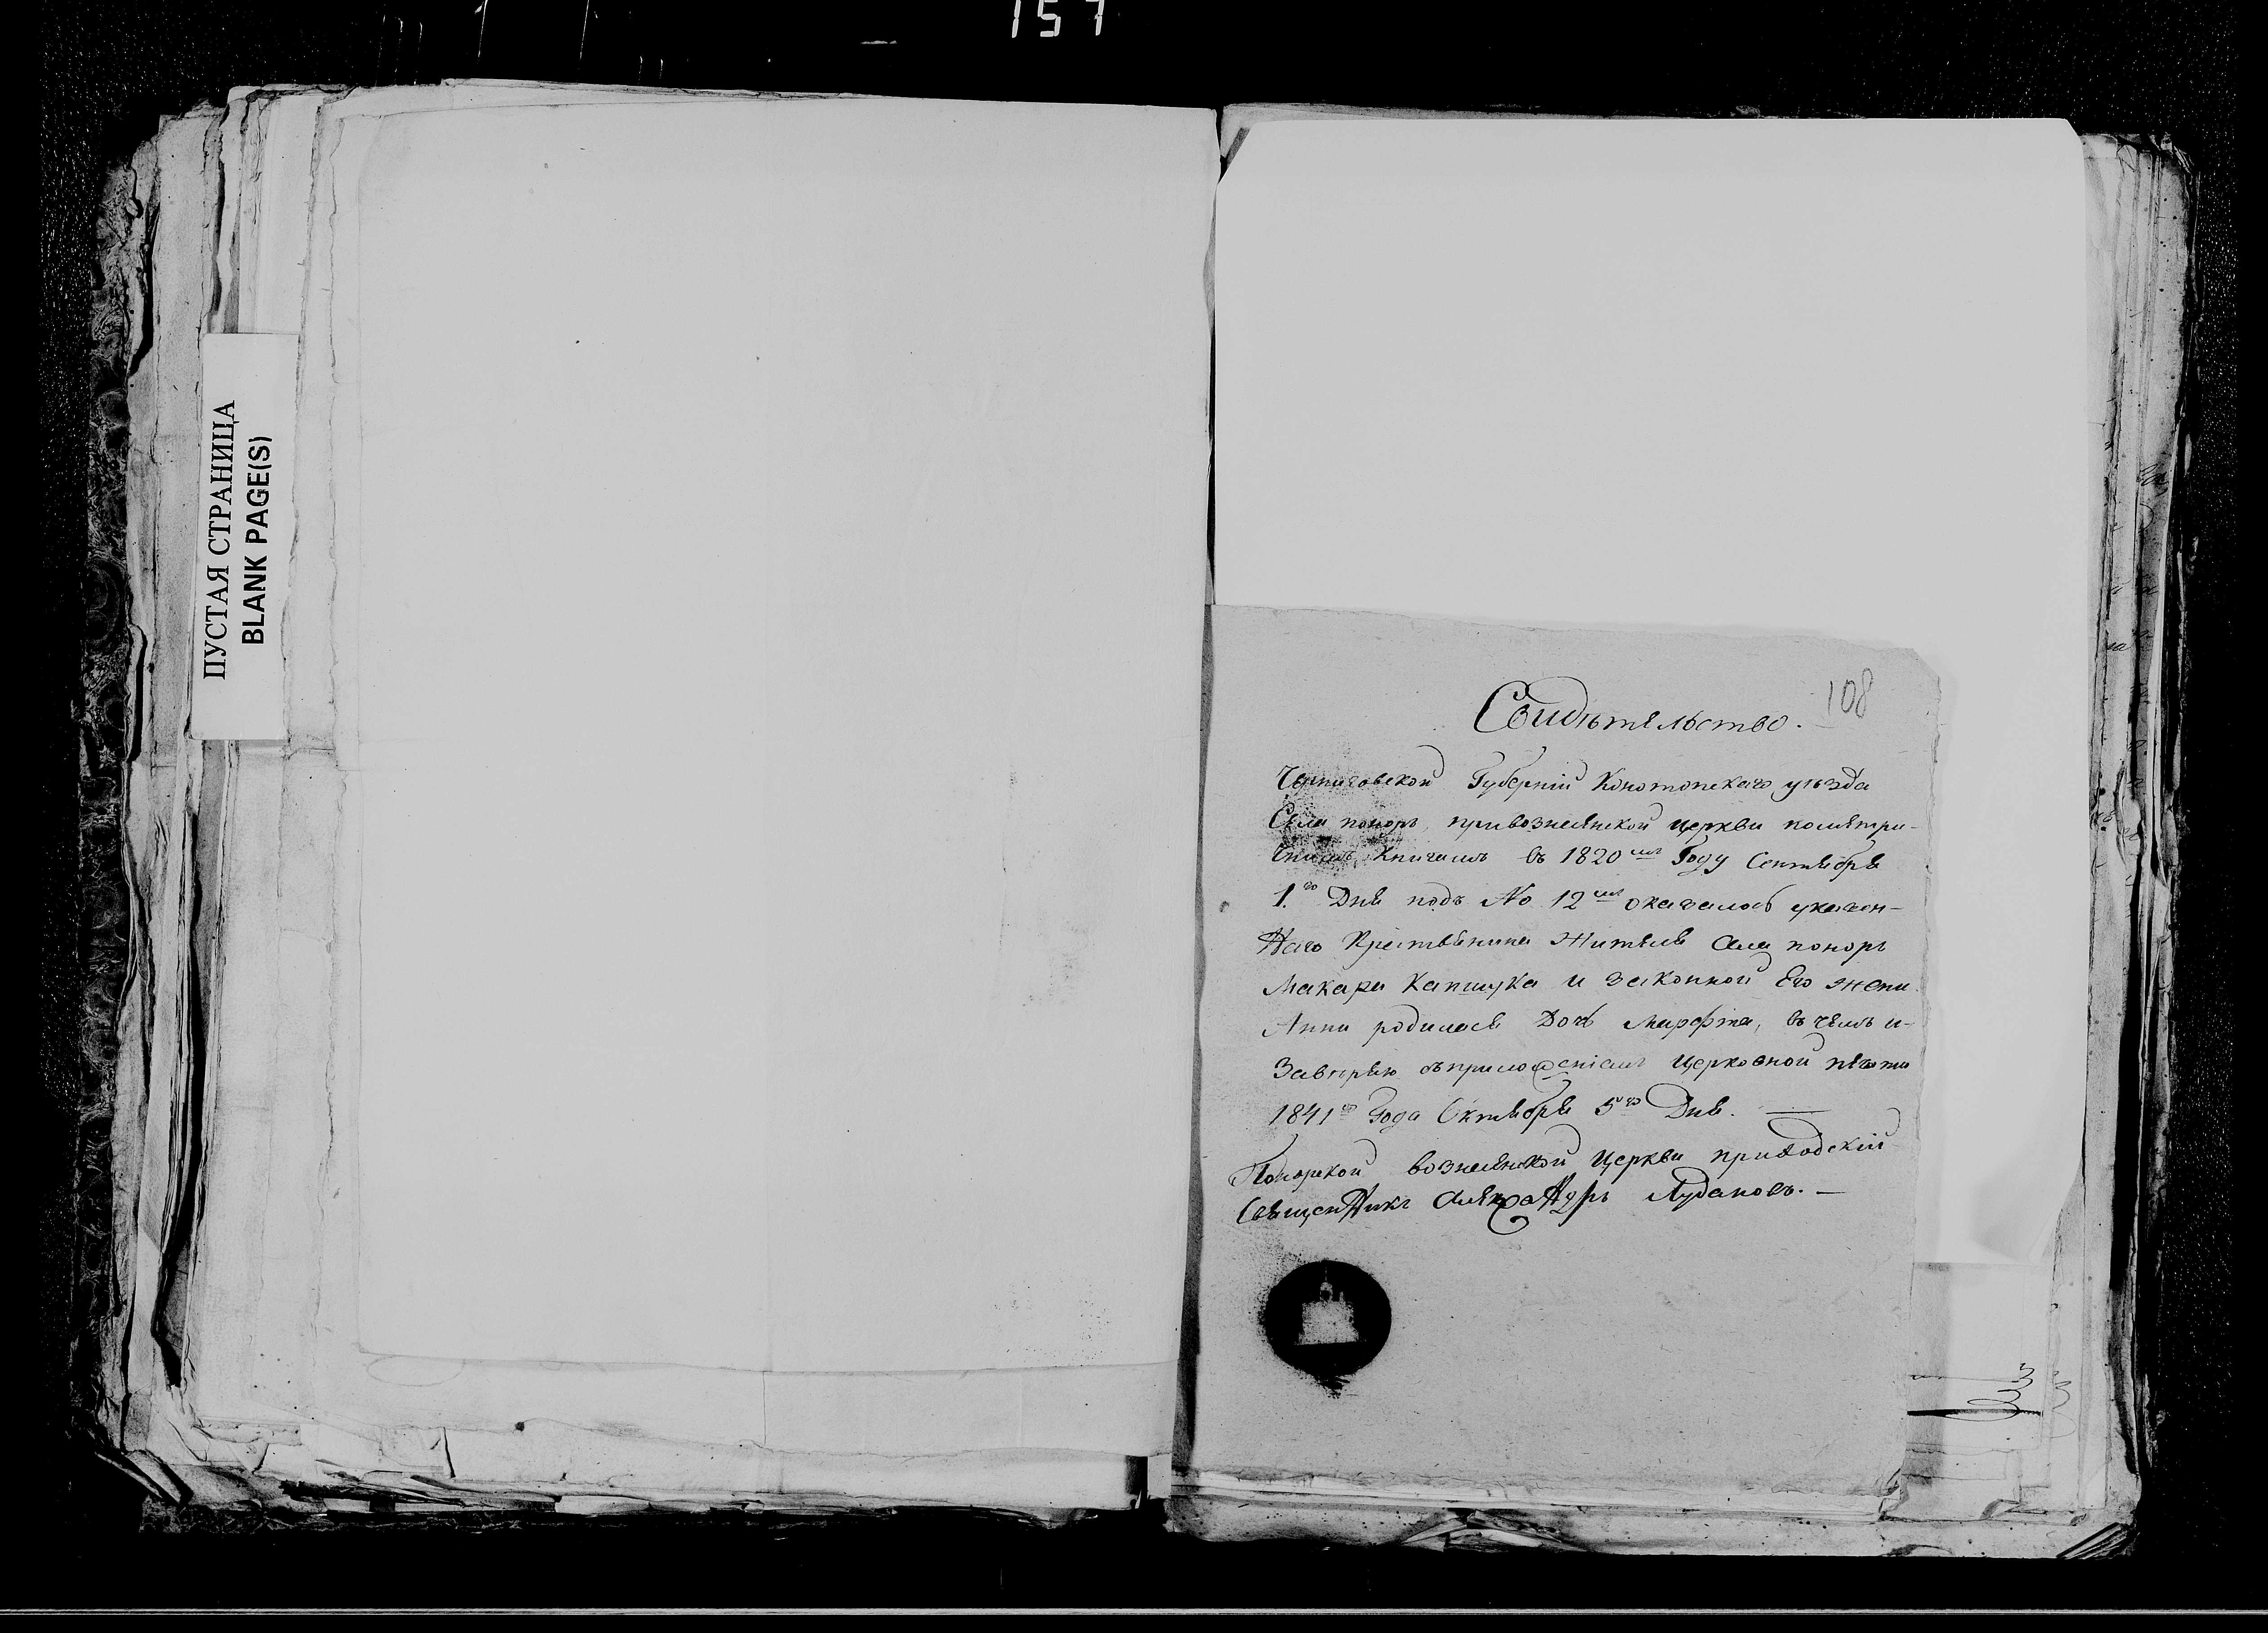 157
ПУСТАЯ СТРАНИЦА
BLANK PAGE(S)
108
Свидѣтельство.
Черниговской Губерніи Конотопскаго уѣзда
Села поноръ, привознесенской Церкви пометри-
Книгамъ въ 1820мъ Году Сентября
1.го Дня подъ No 12мъ оказалось указен-
Наго Крестьянина Жителя Села поноръ
Макара Капшука и законной Его жены
Анни родилась Дочь Марфіа, въ чемъ и-
Завѣряю съприложеніемъ Церковной пѣчати
1841го Года Октября 5го Дня. —
Понорской вознесенской Церкви приходскій
Священникъ Александръ Лудановъ. —